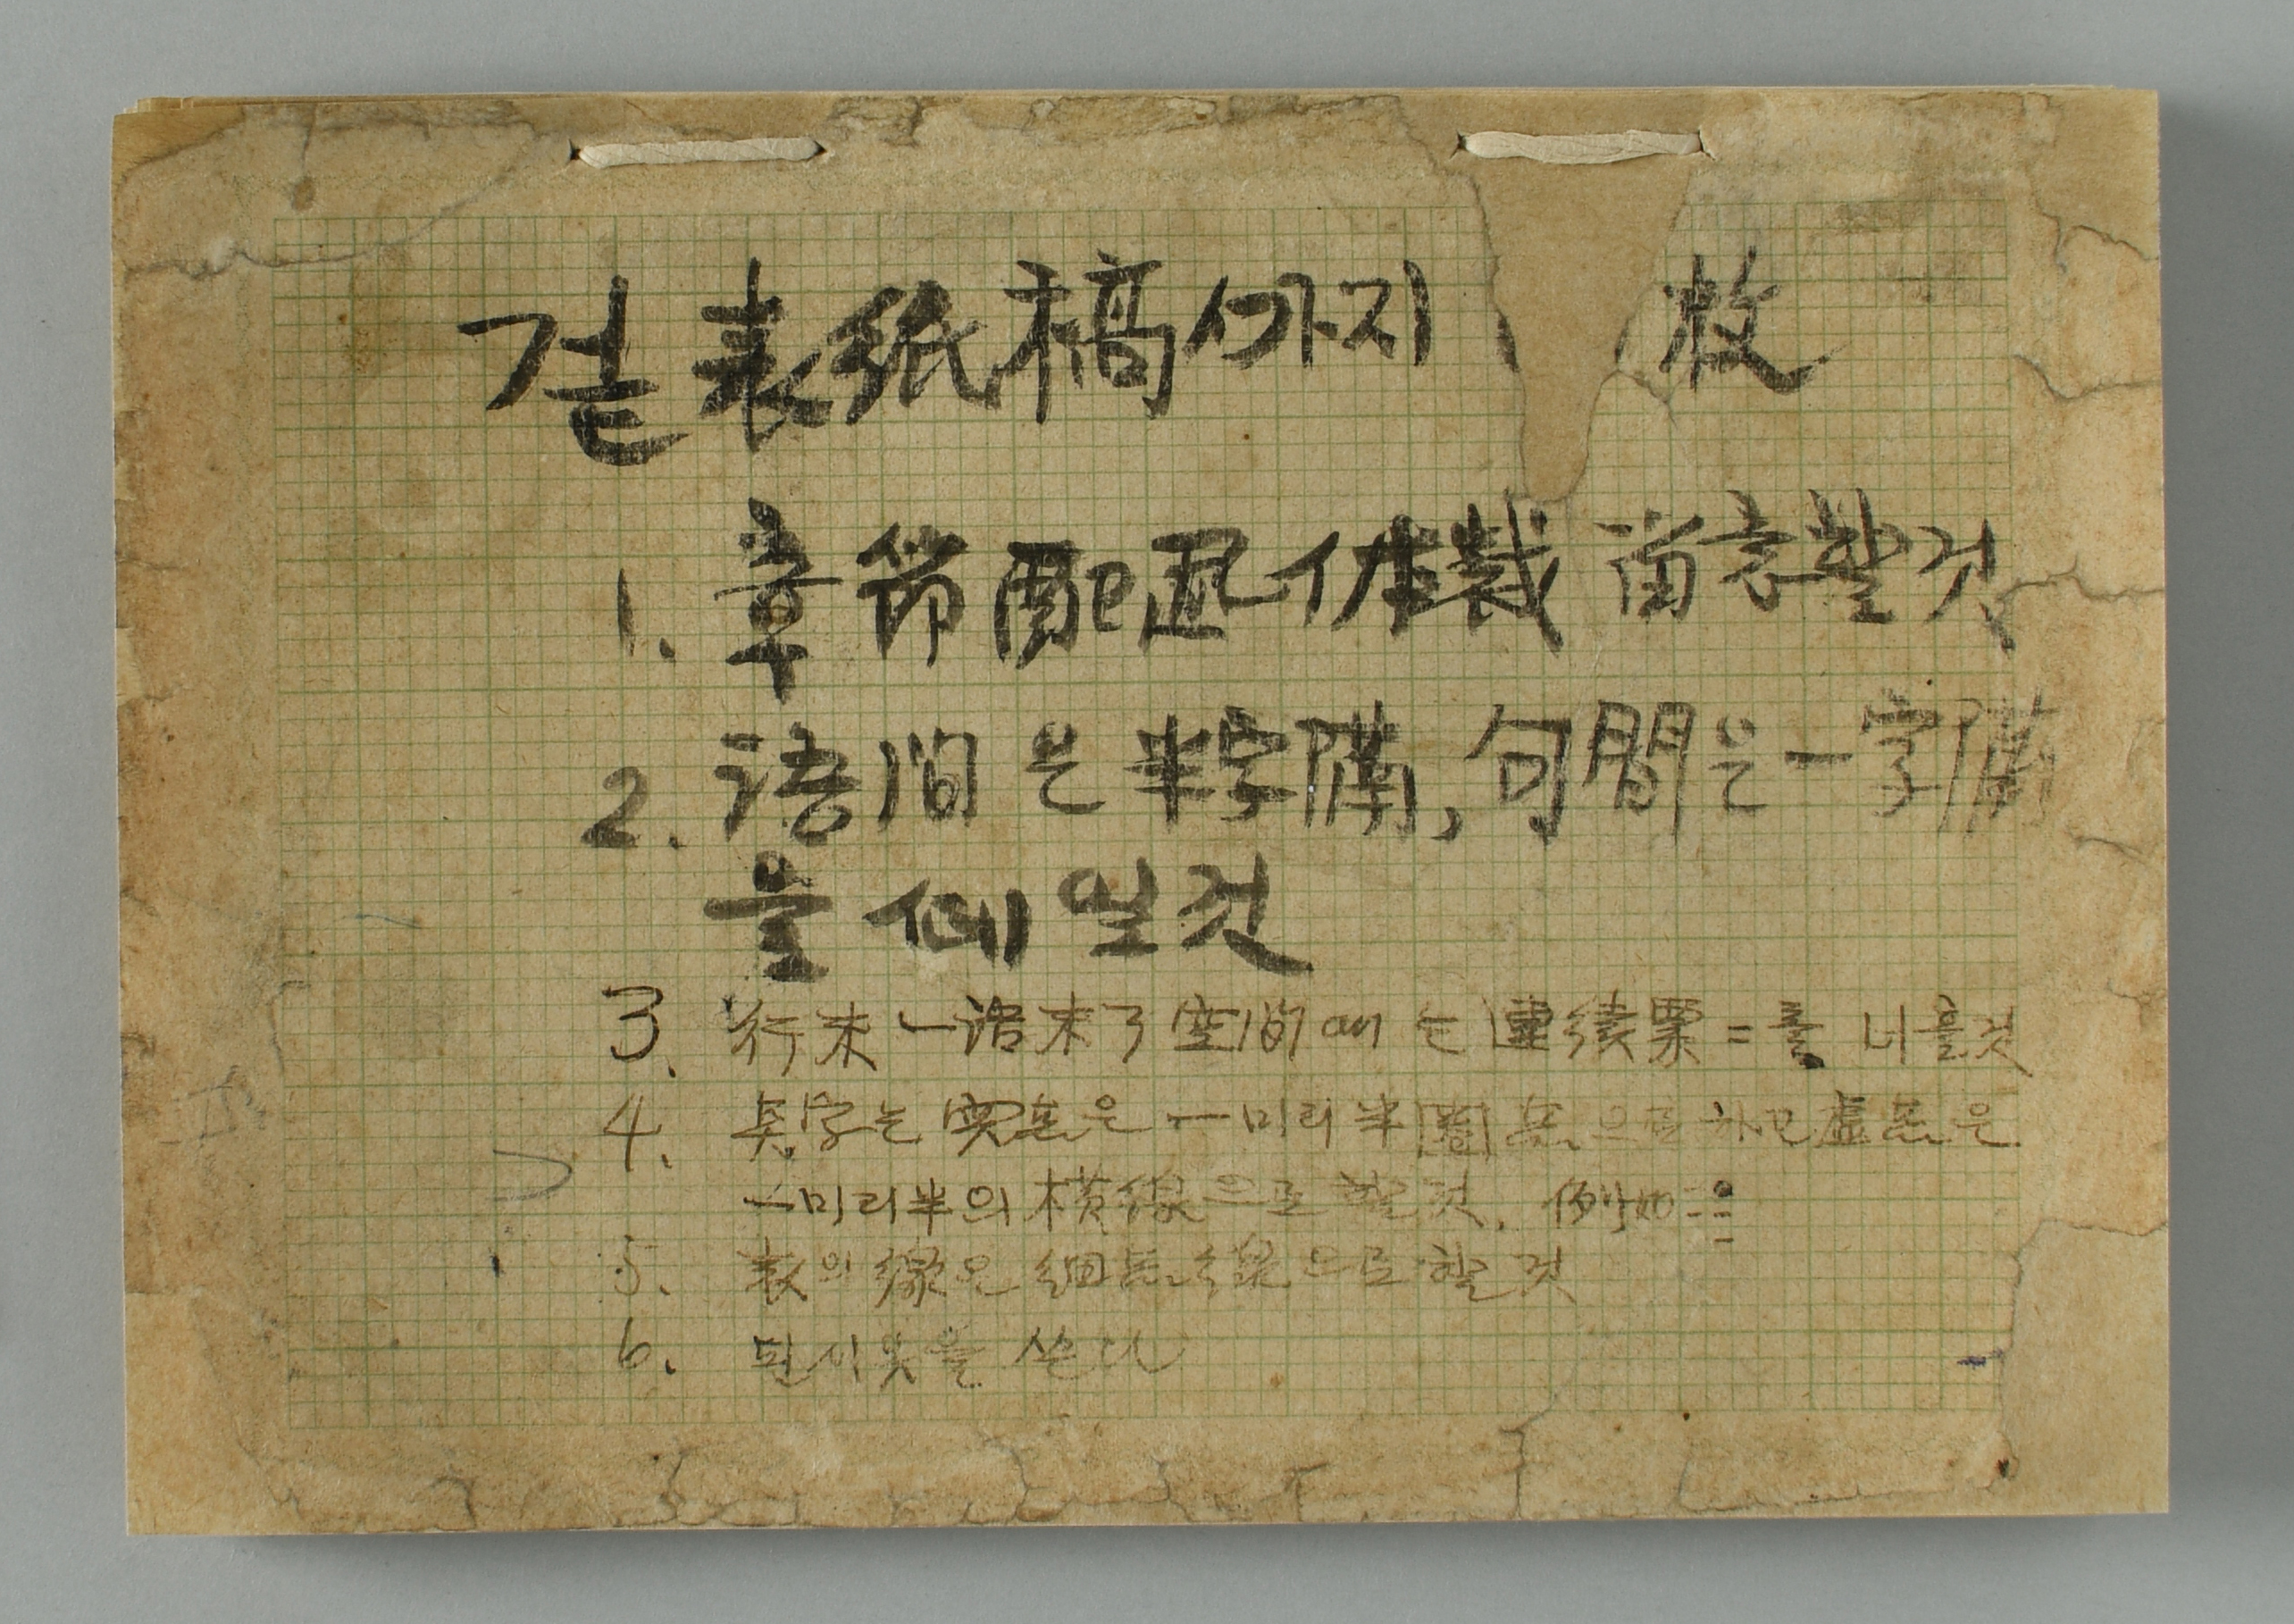 겉表紙稿서까지 枚
1. 章節配置体裁 留意할것
2. 語間은 半字隔, 句間은 一字隔
을 떼일것
3. 行末 一語末了 空間에는 連続票=를 너흘것
4. 字는 実点은 一미리半 圈点으로 하고 虛点은
一미리半의 横線으로 할것. 例如
5. 表의 線은 細点線으로 할것
6. 된시옷을 쓴다